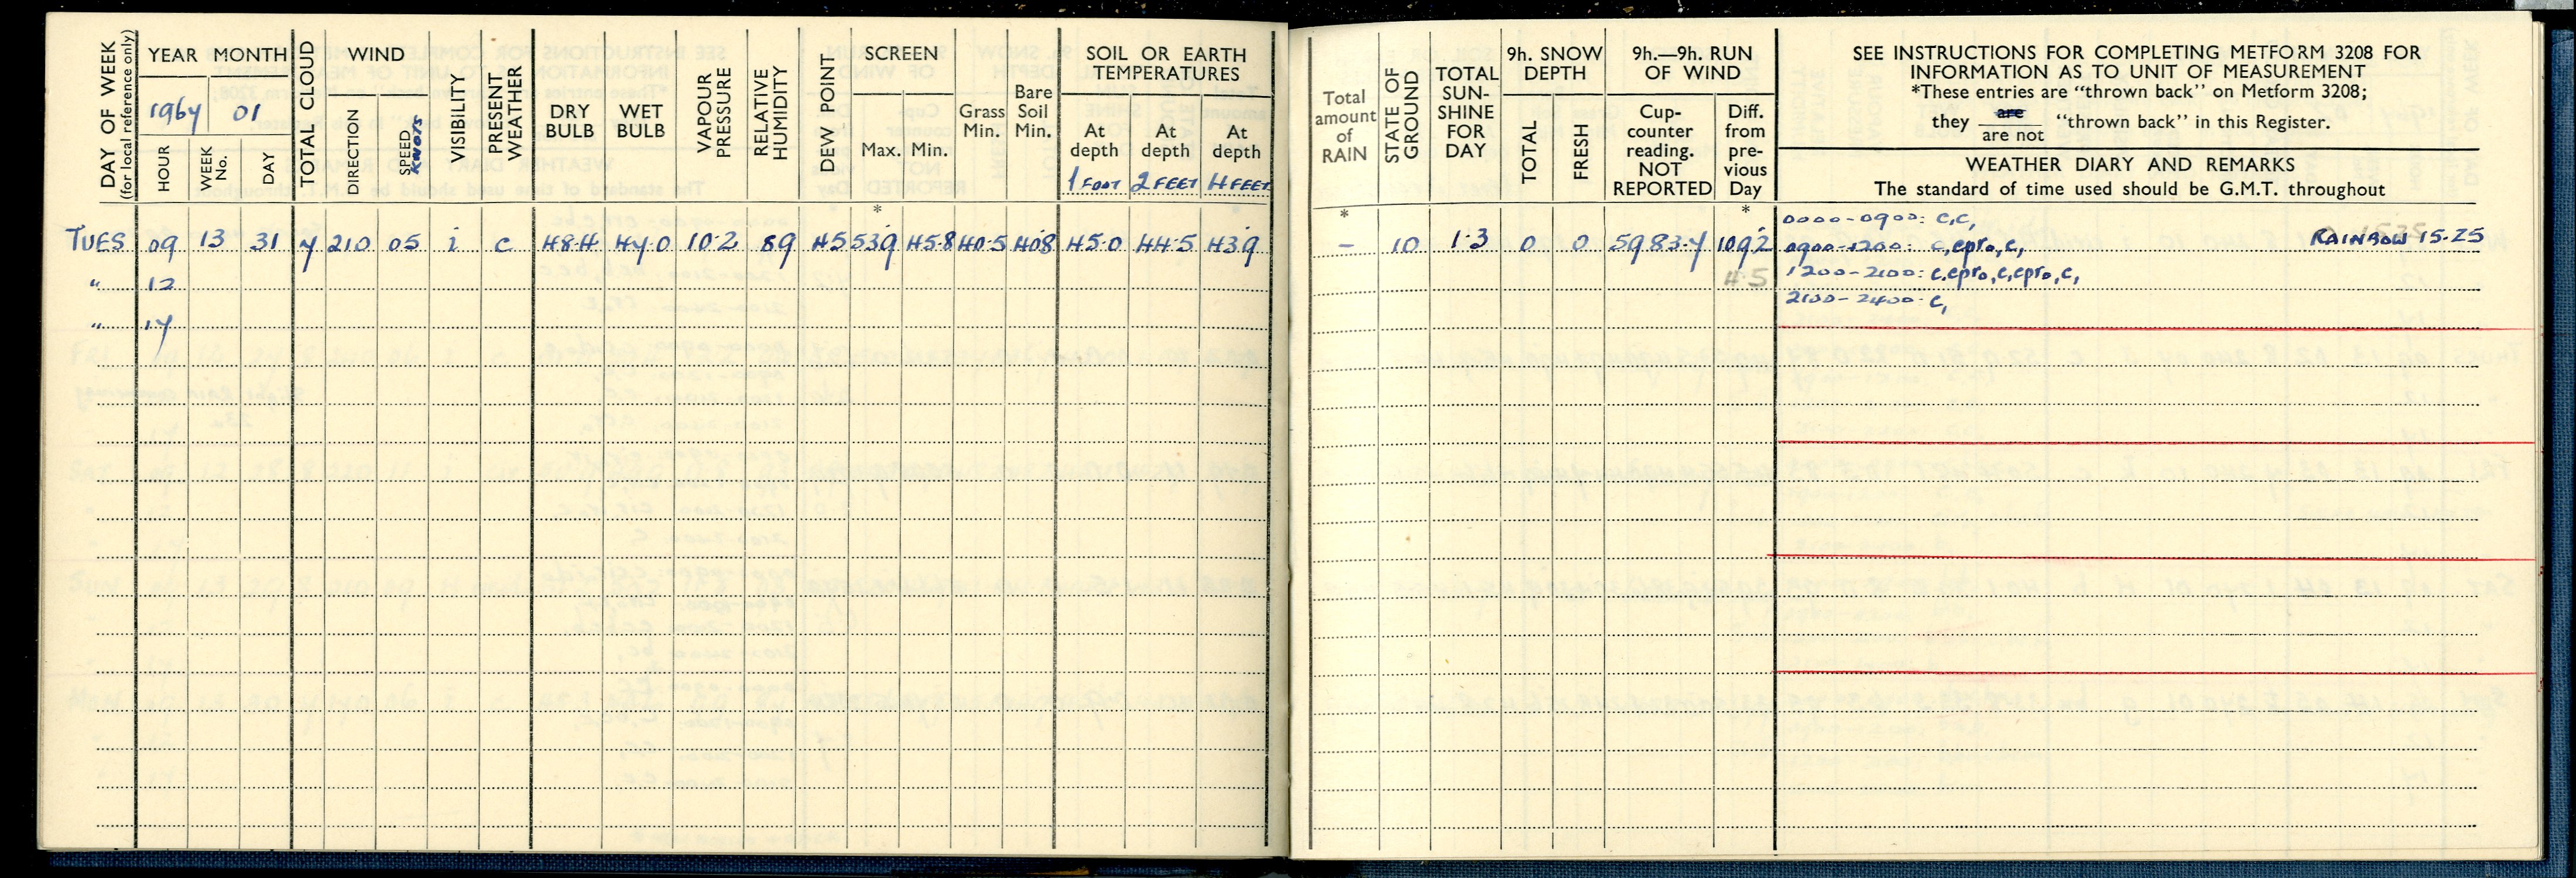 DAY OF WEEK
(for local reference only)
YEAR MONTH
1967 01
HOUR
WEEK No.
DAY
TOTAL CLOUD
WIND
DIRECTION
SPEED
KNOTS
VISIBILITY
PRESENT WEATHER
DRY BULB
WET BULB
VAPOUR PRESSURE
RELATIVE HUMIDITY
DEW POINT
SCREEN
Max. Min.
Grass Min.
Bare Soil Min.
SOIL OR EARTH
TEMPERATURES
At depth
1 FOOT
At depth
2 FEET
At depth
4 FEET
*
TUES 09 13 31 7 210 05 i c 48.4 47.0 10.2 89 45 53.9 45.8 40.5 40.8 45.0 44.5 43.9
" 12
" 17
Total amount of RAIN
STATE OF GROUND
TOTAL SUN-SHINE FOR DAY
9h. SNOW DEPTH
TOTAL
FRESH
9h.—9h. RUN OF WIND
Cup-counter reading. NOT REPORTED
Diff. from pre-vious Day
SEE INSTRUCTIONS FOR COMPLETING METFORM 3208 FOR
INFORMATION AS TO UNIT OF MEASUREMENT
*These entries are "thrown back" on Metform 3208;
they are / are not "thrown back" in this Register.
WEATHER DIARY AND REMARKS
The standard of time used should be G.M.T. throughout
* *
– 10 1.3 0 0 5983.7 109.2
4.5
0000-0900: c,c,
0900-1200: c,epro,c, RAINBOW 15.25
1200-2100: c,epro,c,epro,c,
2100-2400: c,